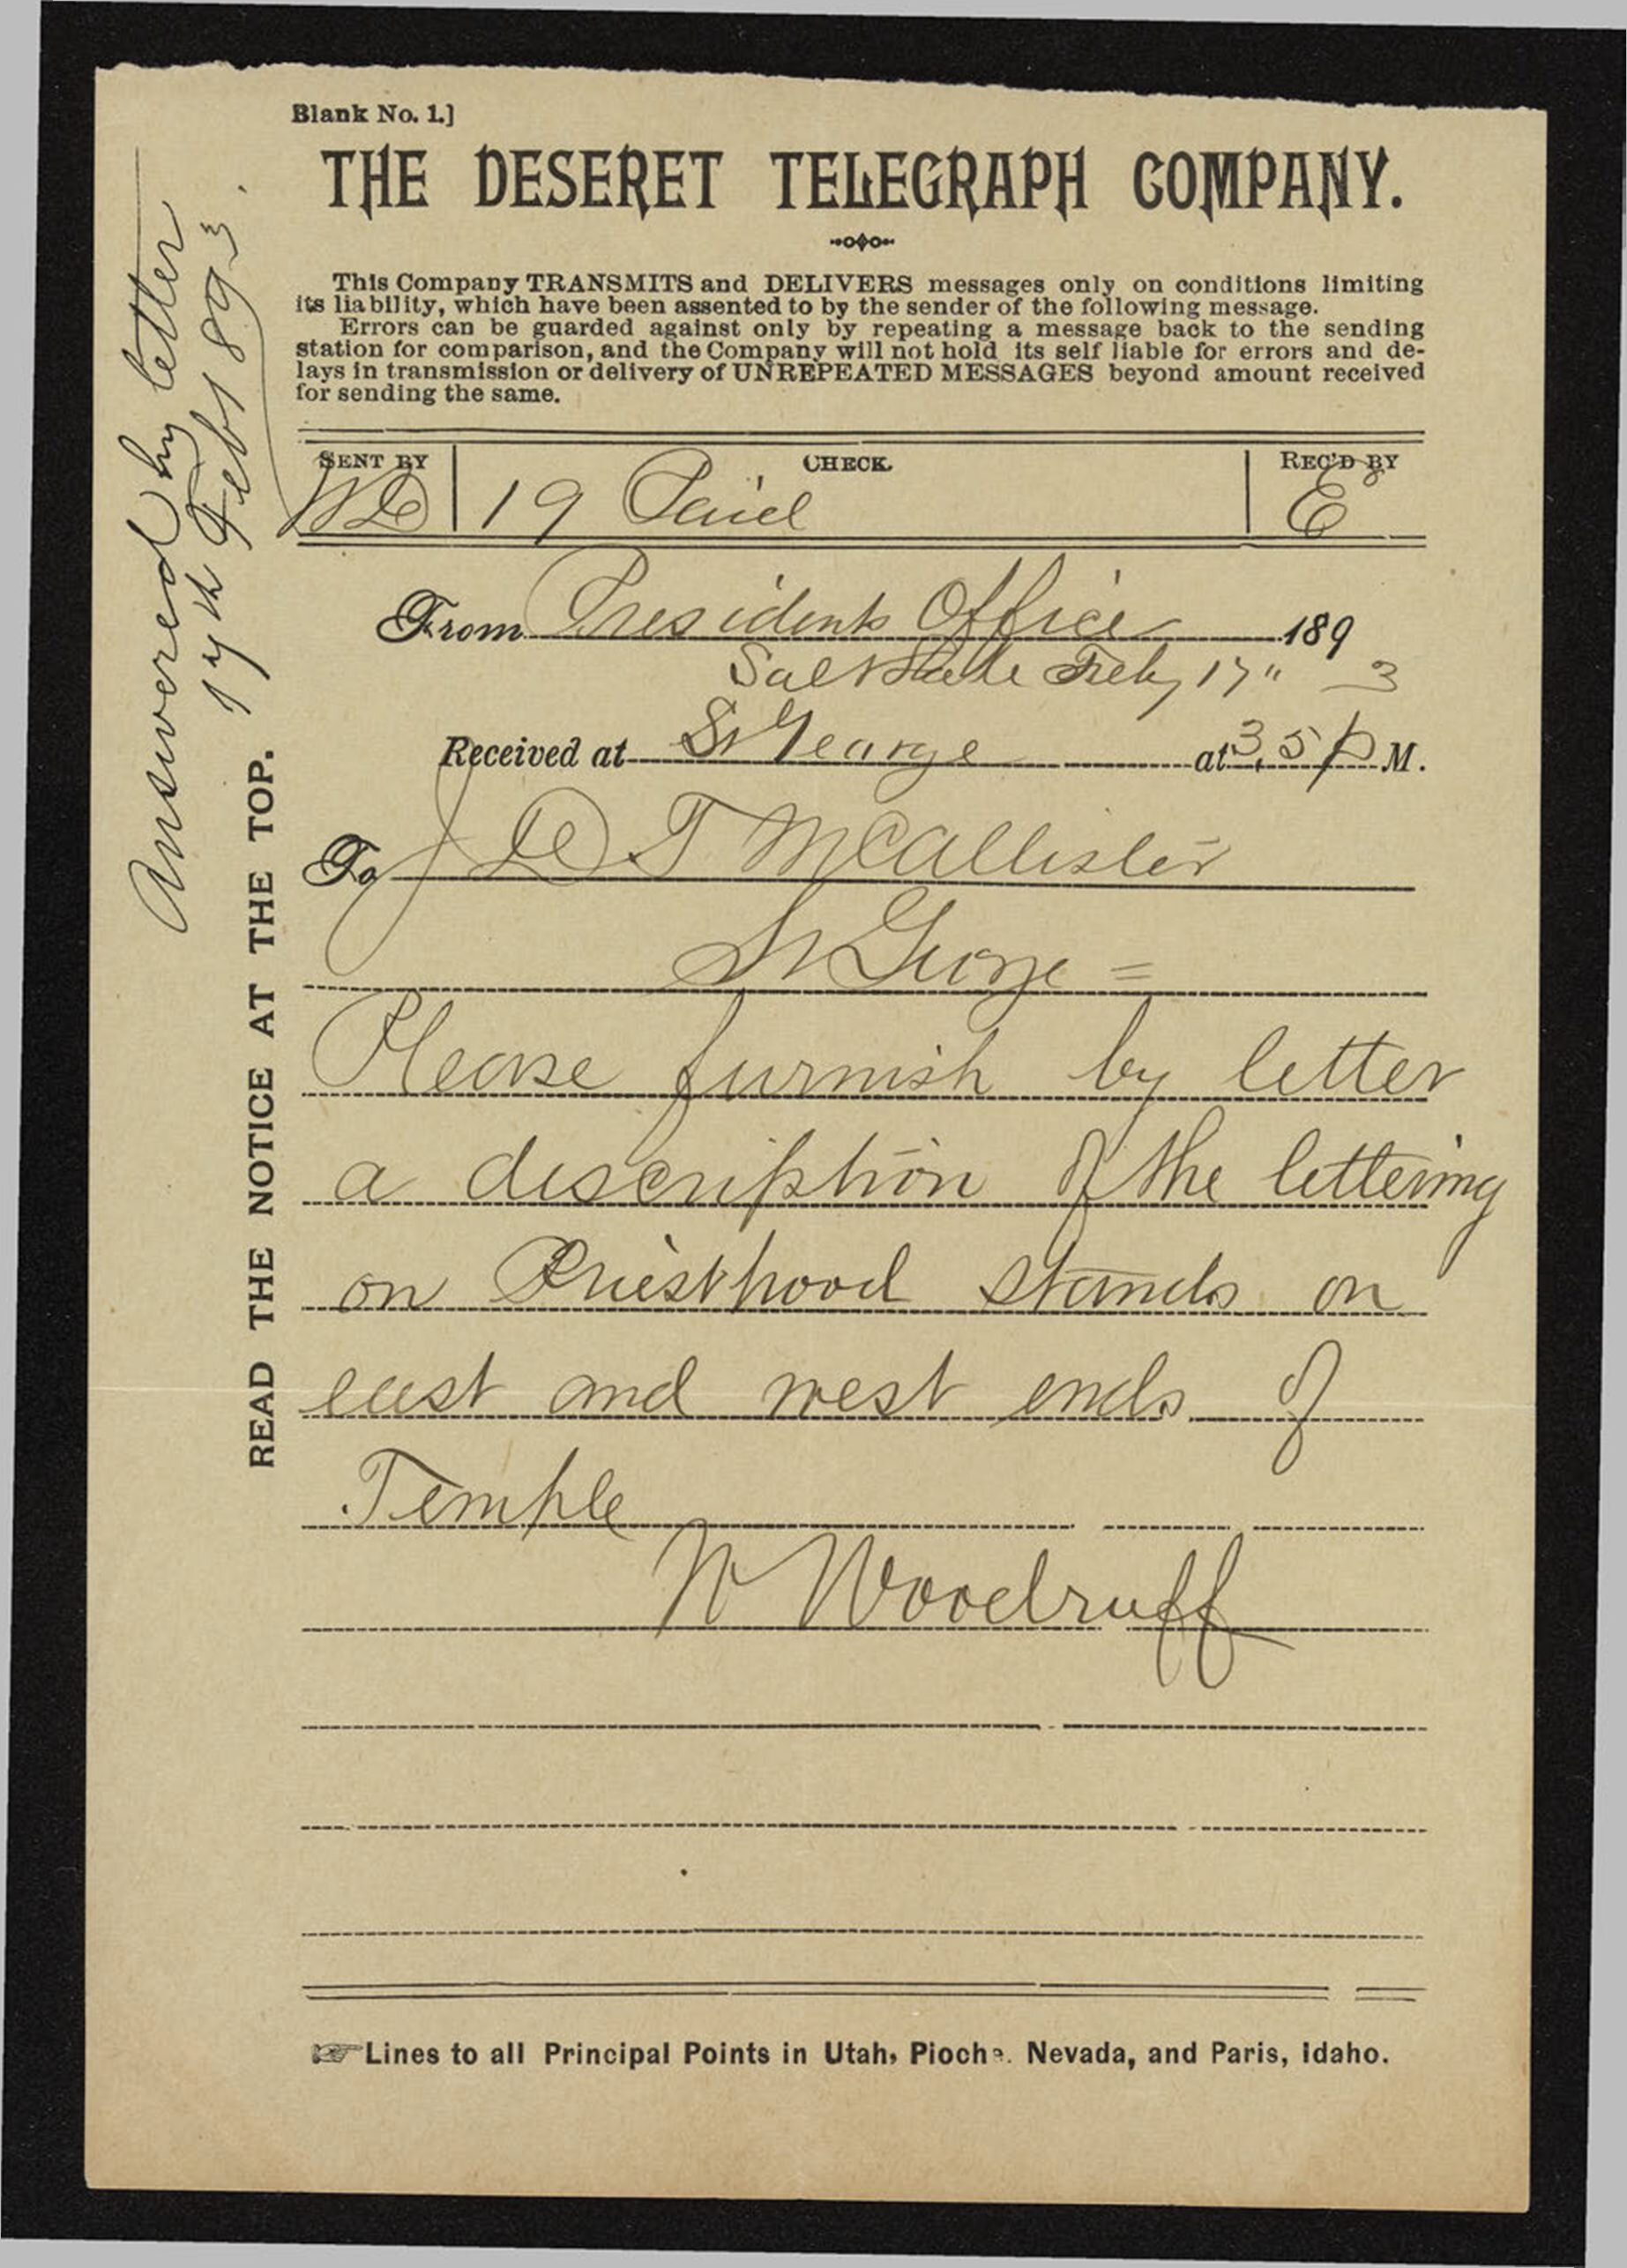 Blank No. 1.]
THE DESERET TELEGRAPH COMPANY.
This Company TRANSMITS and DELIVERS messages only on conditions limiting
its liability, which have been assented to by the sender of the following message.
Errors can be guarded against only by repeating a message back to the sending
station for comparison, and the Company will not hold its self liable for errors and de-
lays in transmission or delivery of UNREPEATED MESSAGES beyond amount received
for sending the same.
SENT BY CHECK. REC'D BY
19 Paid E
From Presidents Office 189
Salt Lake Feby 17" 3
Received at St George at 3,5 P M.
To J D T McAllister
St George =
Please furnish by letter
a description of the lettering
on Priesthood stands on
east and west ends of
Temple
W Woodruff
Lines to all Principal Points in Utah, Pioche. Nevada, and Paris, Idaho.
READ THE NOTICE AT THE TOP.
Answered by letter
17th Feb 1893.